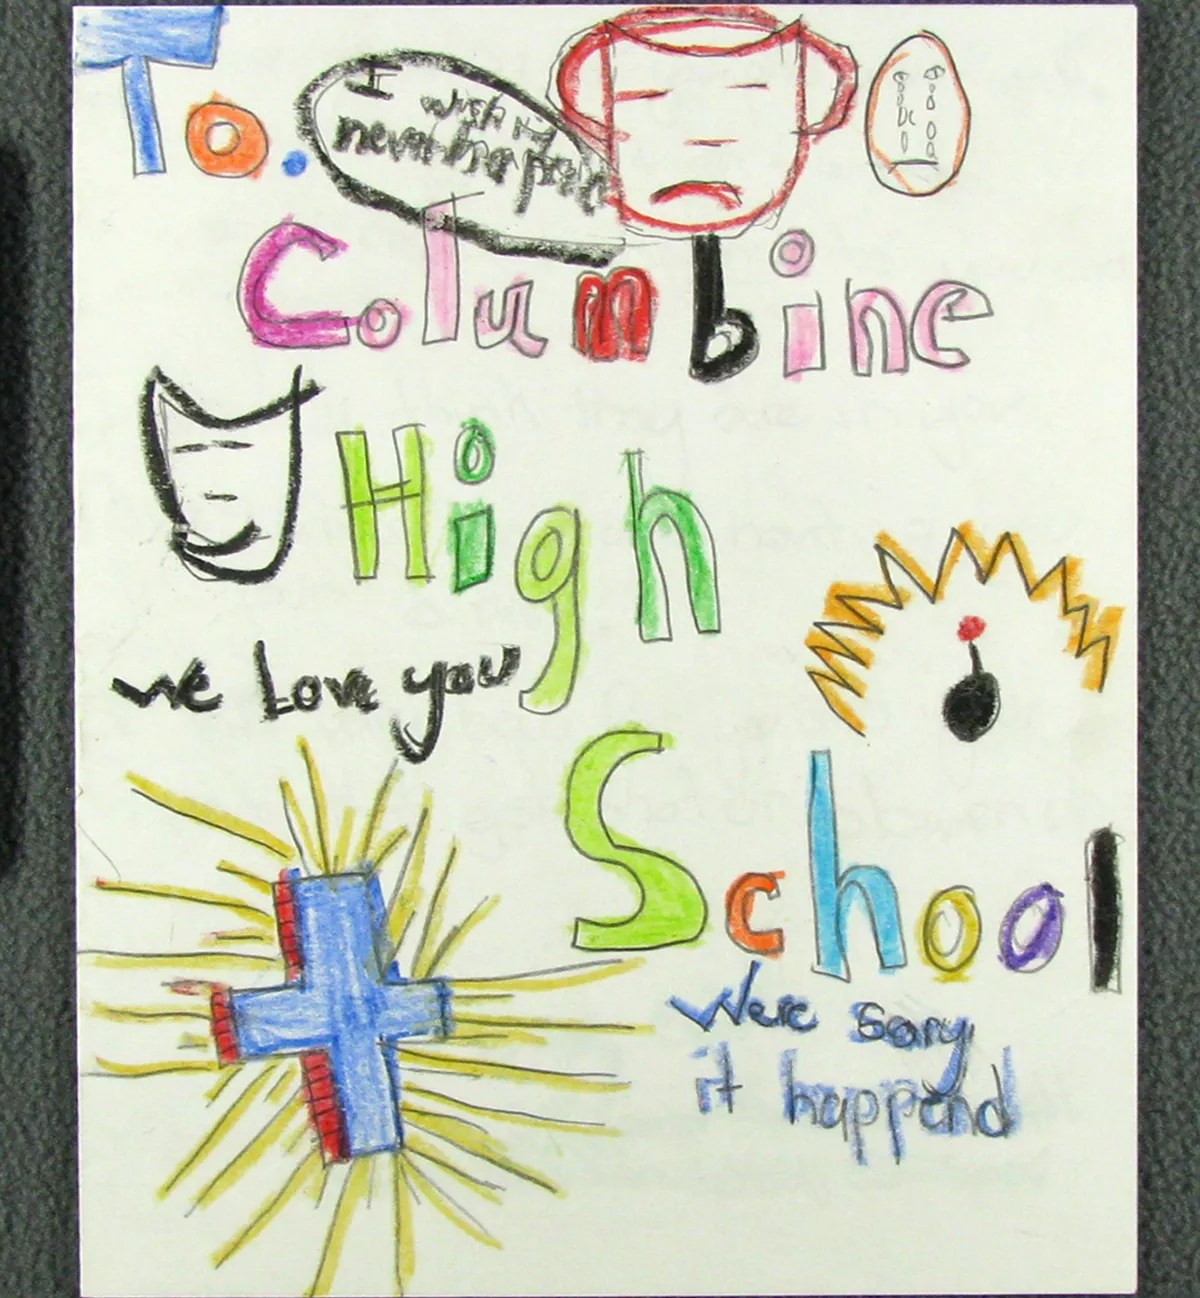 To.
I
wish it
never happend
Columbine
High
we Love you
School
Were sory
it happend